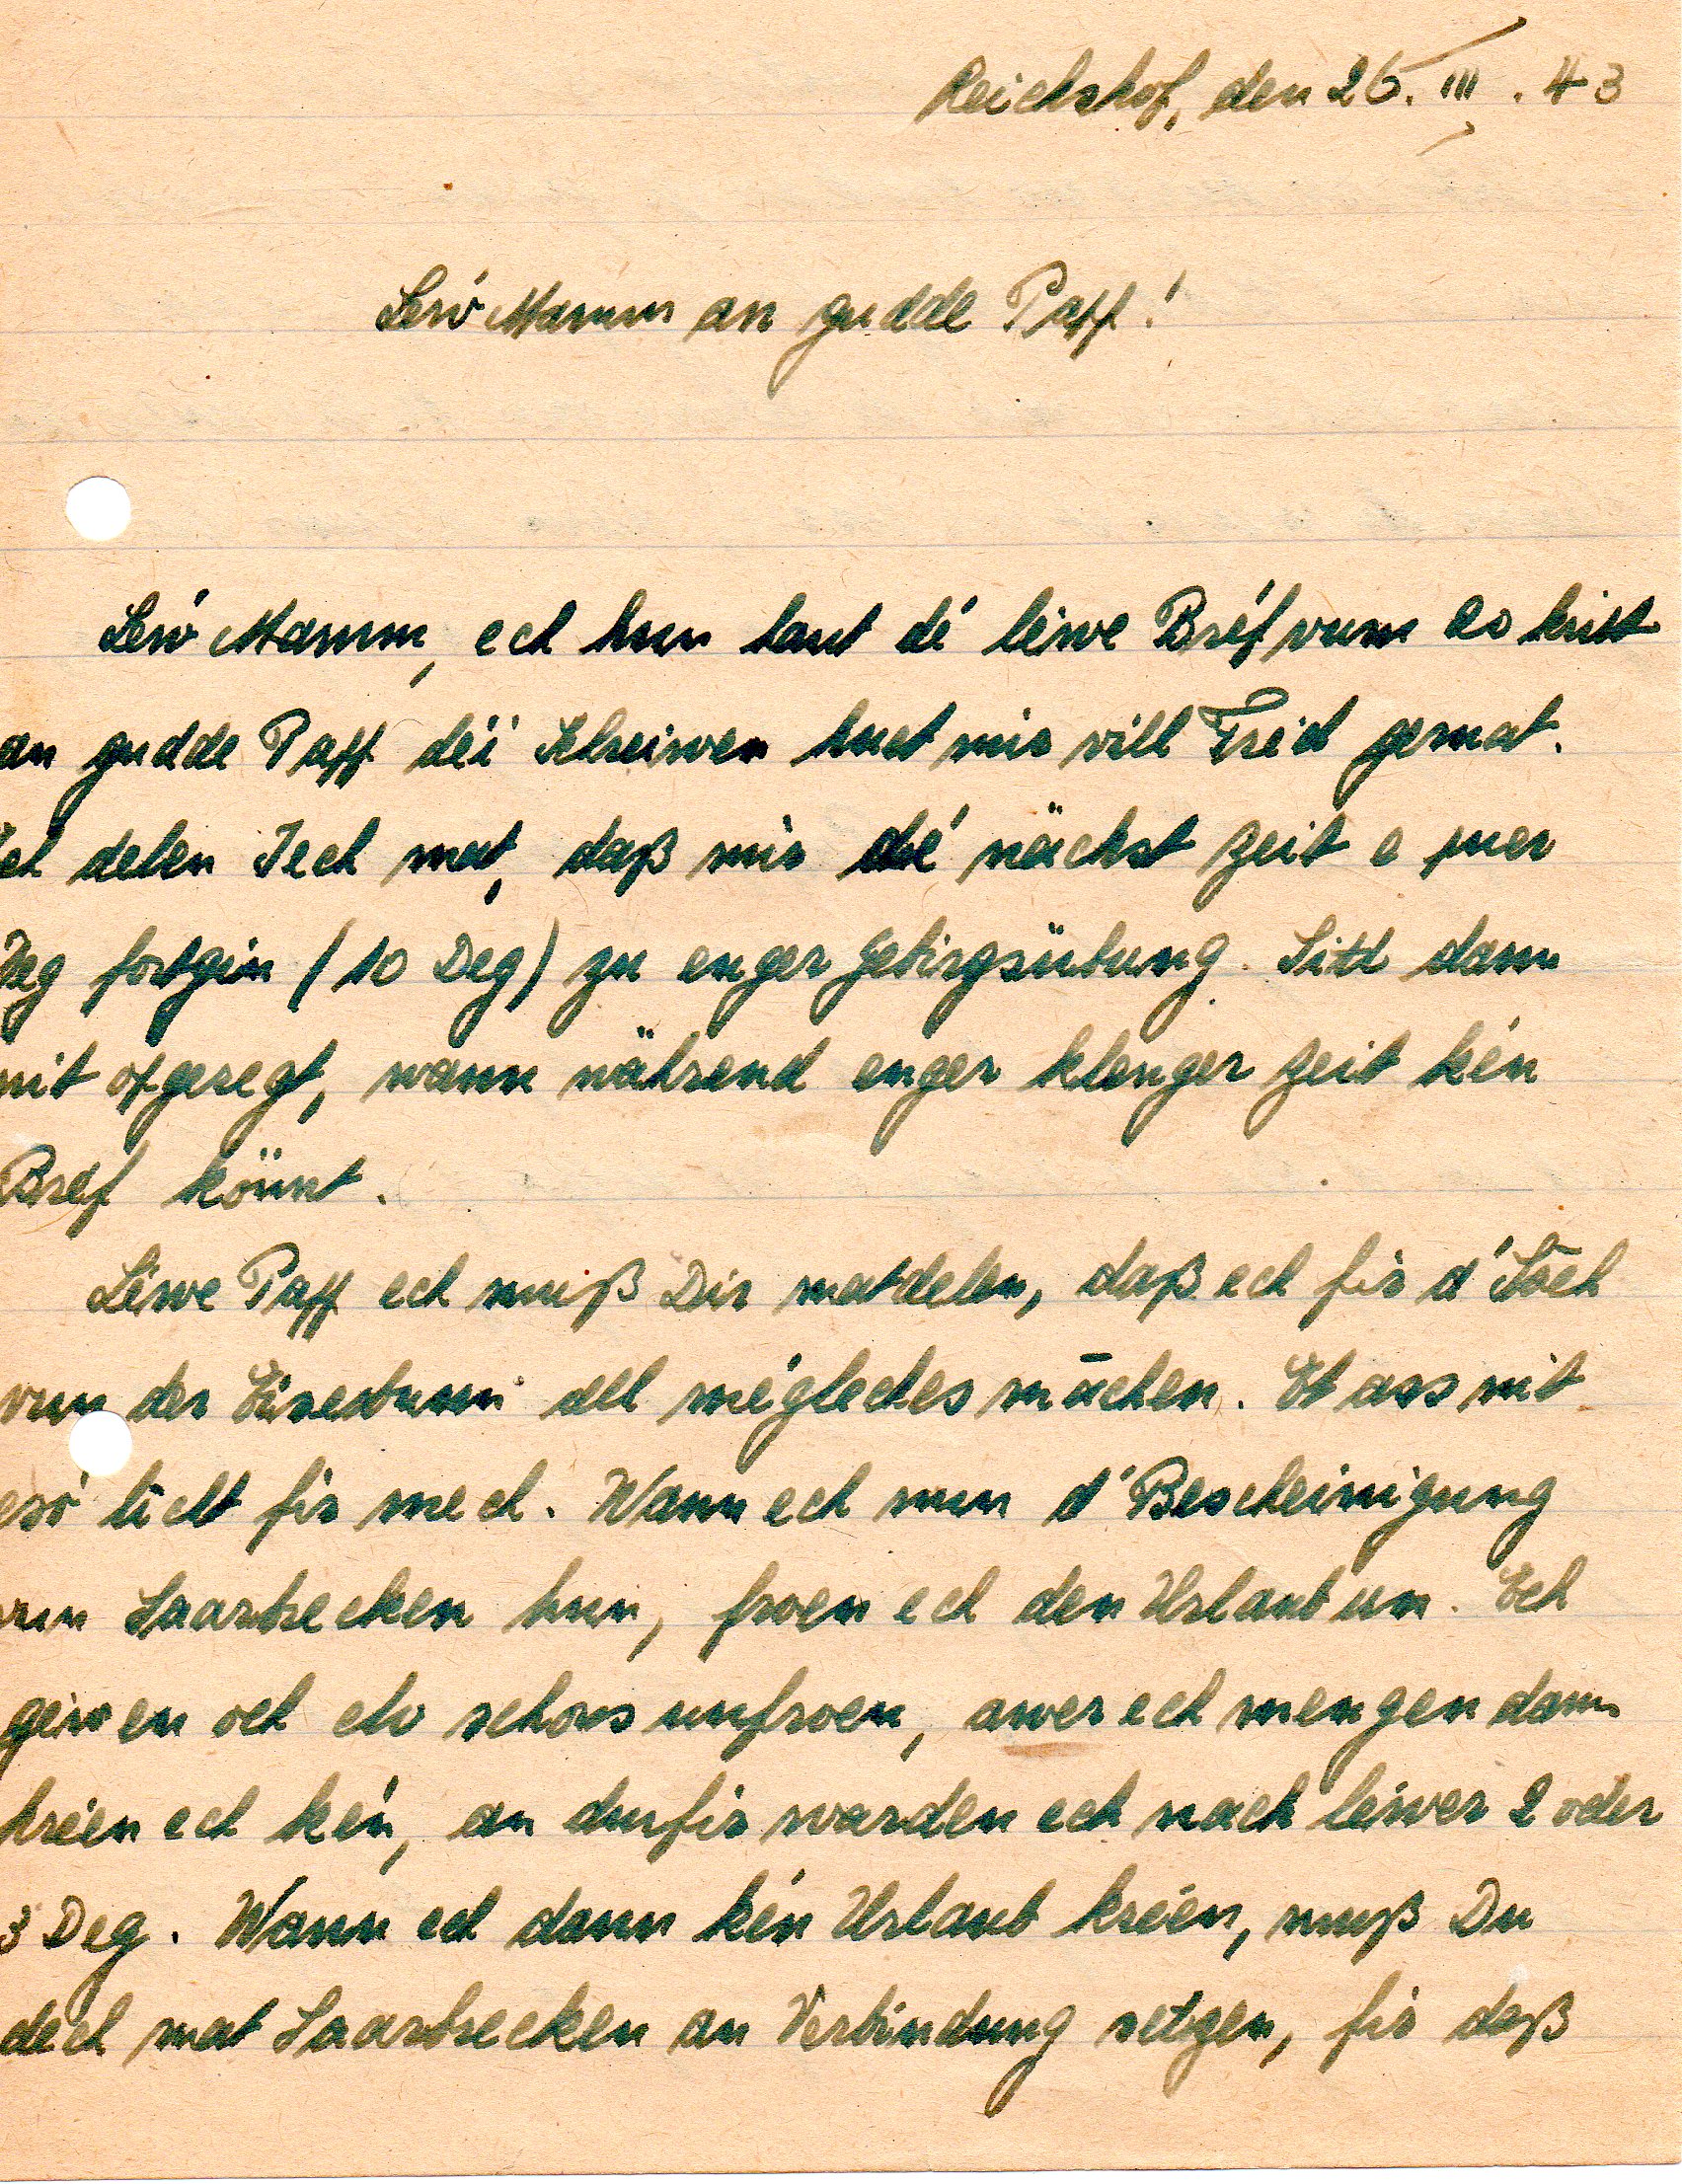 Reichshof, den 26. III. 43
Leiw Mamm an gudde Papp!
Leiw Mamm, ech hun haut dé léiwe Bréf vum 20 kritt
an gudde Papp déi Schreiwen huet mir vill Fréd gemat.
Ech delen Iech mat, daß mir dé nächst Zeit e puer
Deg fortgin (10 Deg) zu enger Gebirgsübung. Sitd dann
nit opgeregt, wann während enger klenger Zeit kén
Bréf könnt.
Léiwe Papp ech muß Dir matdelen, daß ech fir d'Sach
vun der all méigleches māchen. Et ass nit
esó licht fir mech. Wann ech nun d'Bescheinigung
vun Saarbrecken hun, froen ech den Urlaub un. Ech
géiwen och elo schons unfroen, awer ech mengen dann
kréien ech kén, an durfir warden ech nach léiwer 2 oder
3 Deg. Wann ech dann kén Urlaub kréien, muß Du
dech mat Saarbrecken an Verbindung setzen, fir daß